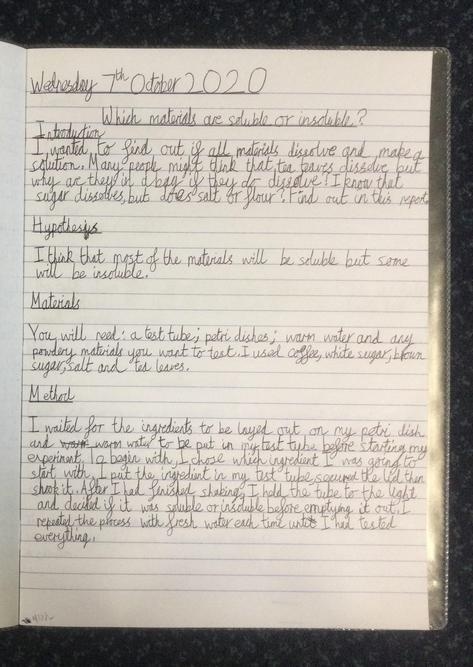 Wednesday 7th October 2020
Which materials are soluble or insoluble?
Introduction
I wanted to find out if all materials dissolve and make a
solution. Many people might think that tea leaves dissolve but
why are they in a bag if they do dissolve? I know that
sugar dissolves, but does salt or flour? Find out in this report.
Hypothesis
I think that most of the materials will be soluble but some
will be insoluble.
Materials
You will need: a test tube; petri dishes; warm water and any
powdery materials you want to test. I used coffee, white sugar, brown
sugar, salt and tea leaves.
Method
I waited for the ingredients to be layed out on my petri dish
and warm water to be put in my test tube before starting my
experiment. To begin with, I chose which ingredient I was going to
start with, I put the ingredient in my test tube, secured the lid then
shook it. After I had finished shaking, I hold the tube to the light
and decided if it was soluble or insoluble before emptying it out. I
repeated the process with fresh water each time until I had tested
everything.